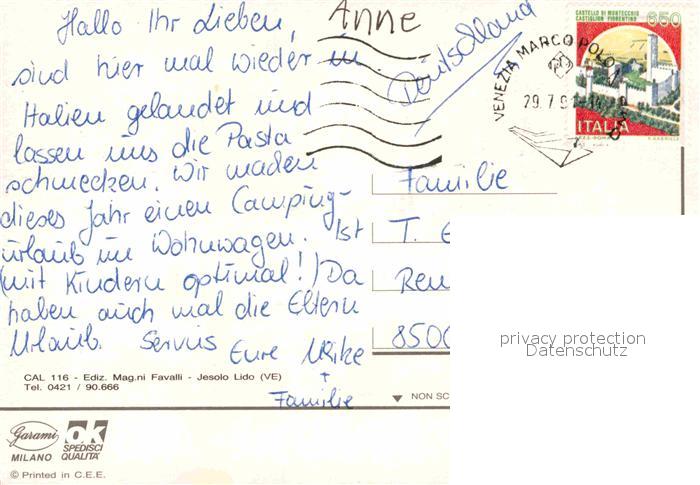 Hallo Ihr Lieben,
Anne
sind hier mal wieder in
Italien gelandet und
lassen uns die Pasta
schmecken. Wir machen
dieses Jahr einen Camping-
urlaub im Wohnwagen. Ist
(mit Kindern optimal!) Da
haben auch mal die Eltern
Urlaub. Servus
Eure Ulrike
+
Familie
CAL 116 - Ediz. Mag.ni Favalli - Jesolo Lido (VE)
Tel. 0421 / 90.666
Garami
MILANO
OK
SPEDISCI
QUALITÀ
© Printed in C.E.E.
Deutschland
VENEZIA MARCO POLO
29.7.9
CASTELLO DI MONTECCHIO
CASTIGLION FIORENTINO
650
ITALIA
Familie
T.
Ren
850
NON SC
privacy protection
Datenschutz